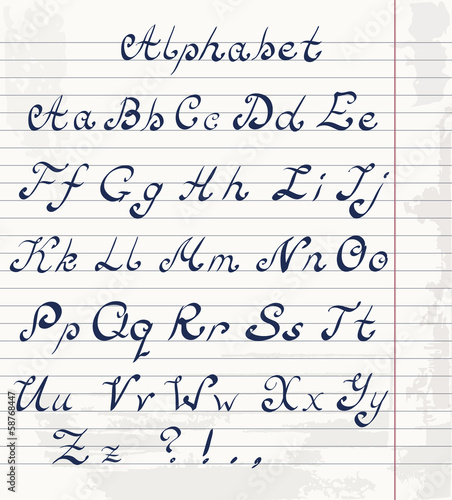 Alphabet
Aa Bb Cc Dd Ee
Ff Gg Hh Ii Jj
Kk Ll Mm Nn Oo
Pp Qq Rr Ss Tt
Uu Vv Ww Xx Yy
Zz ? ! . ,
58768447
Adobe Stock